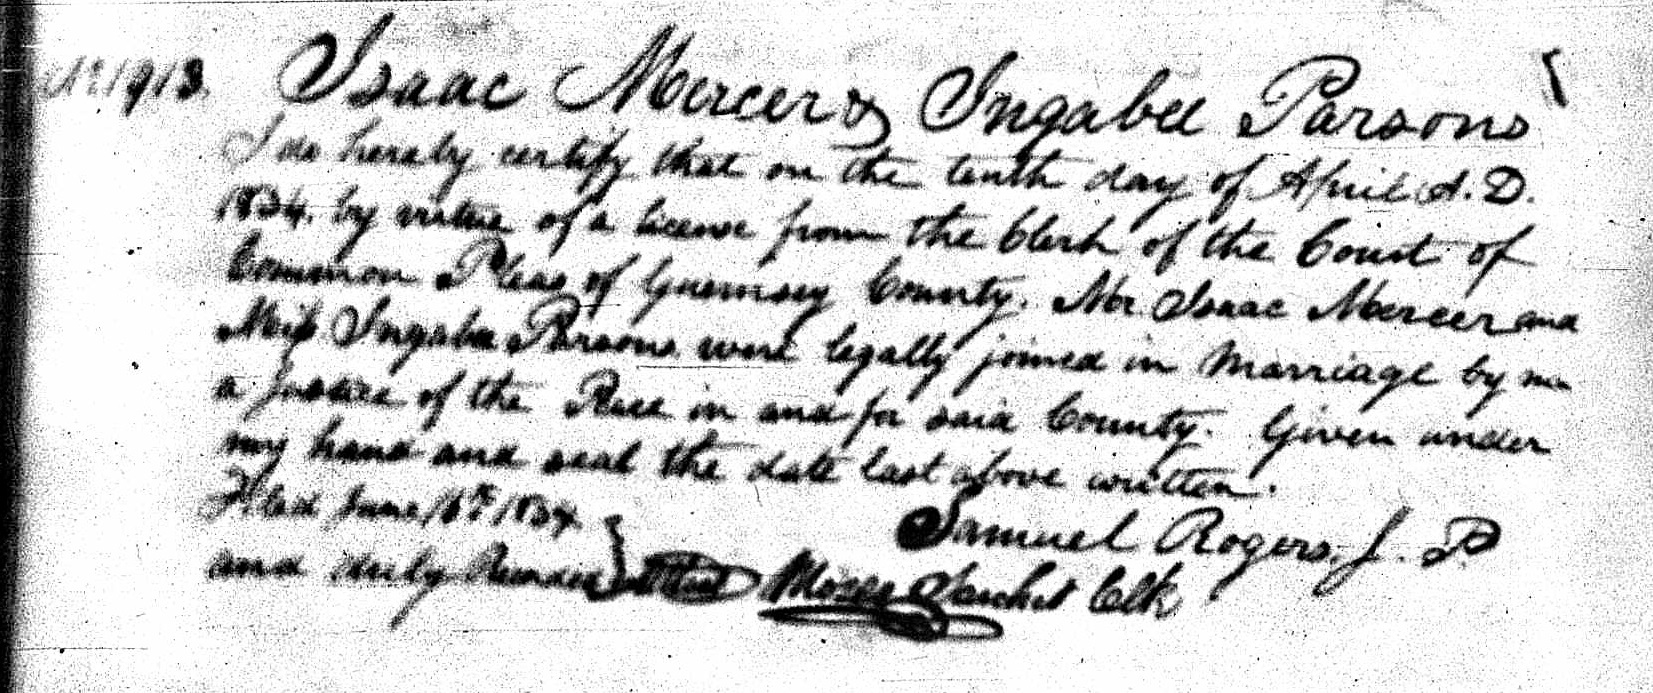 No. 1913. Isaac Mercer & Ingabee Parsons
I do hereby certify that on the tenth day of April A. D.
1834. by virtue of a license from the Clerk of the Court of
Common Pleas of Guernsey County. Mr. Isaac Mercer and
Miss Ingabee Parsons were legally joined in Marriage by me
a Justice of the Peace in and for said County. Given under
my hand and seal the date last above written.
Filed June 16th 1834 Samuel Rogers, J. P.
and duly Recorded Attest Moses Sarchet Clk